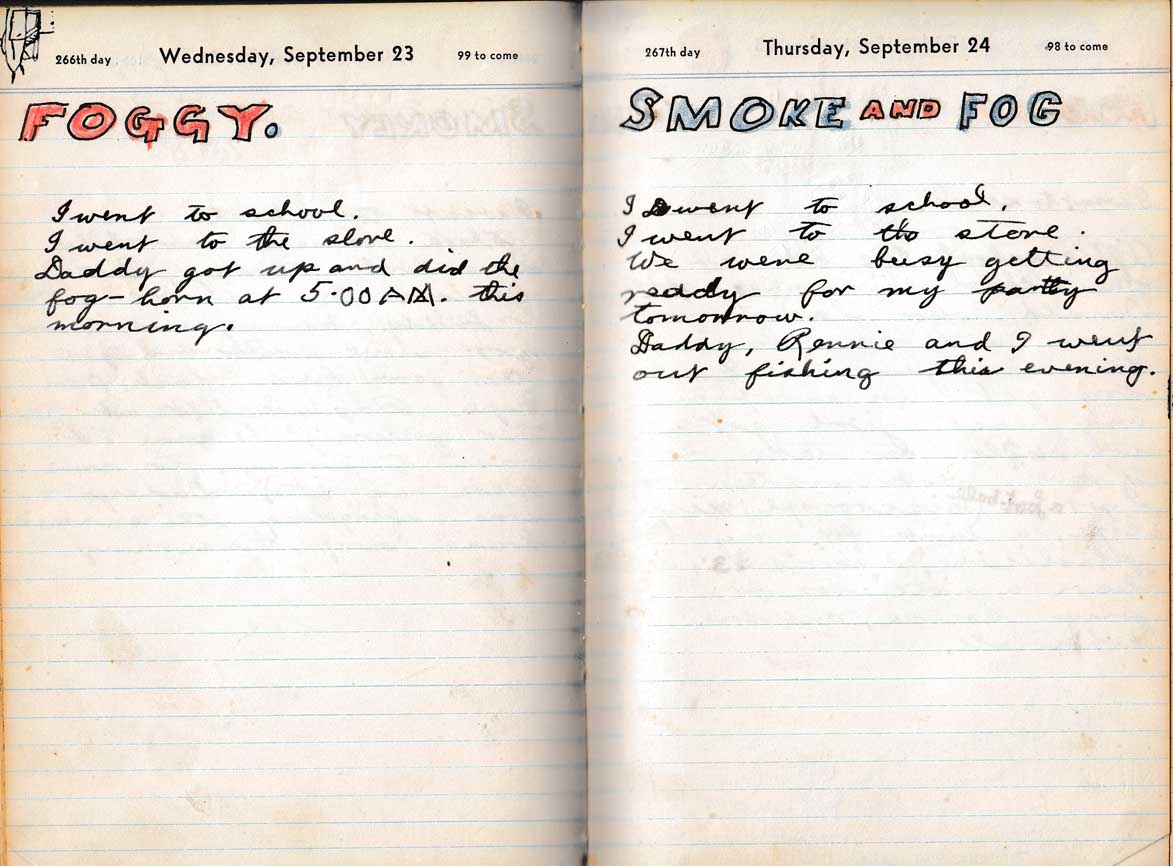 266th day Wednesday, September 23 99 to come
FOGGY.
I went to school.
I went to the store.
Daddy got up and did the
fog-horn at 5:00 AM. this
morning.
267th day Thursday, September 24 98 to come
SMOKE AND FOG
I went to school.
I went to the store.
We were busy getting
ready for my party
tomorrow.
Daddy, Rennie and I went
out fishing this evening.